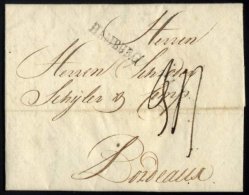 Herren
HAMBURG
Herren Schröder
Schÿler & Comp.
Bordeaux